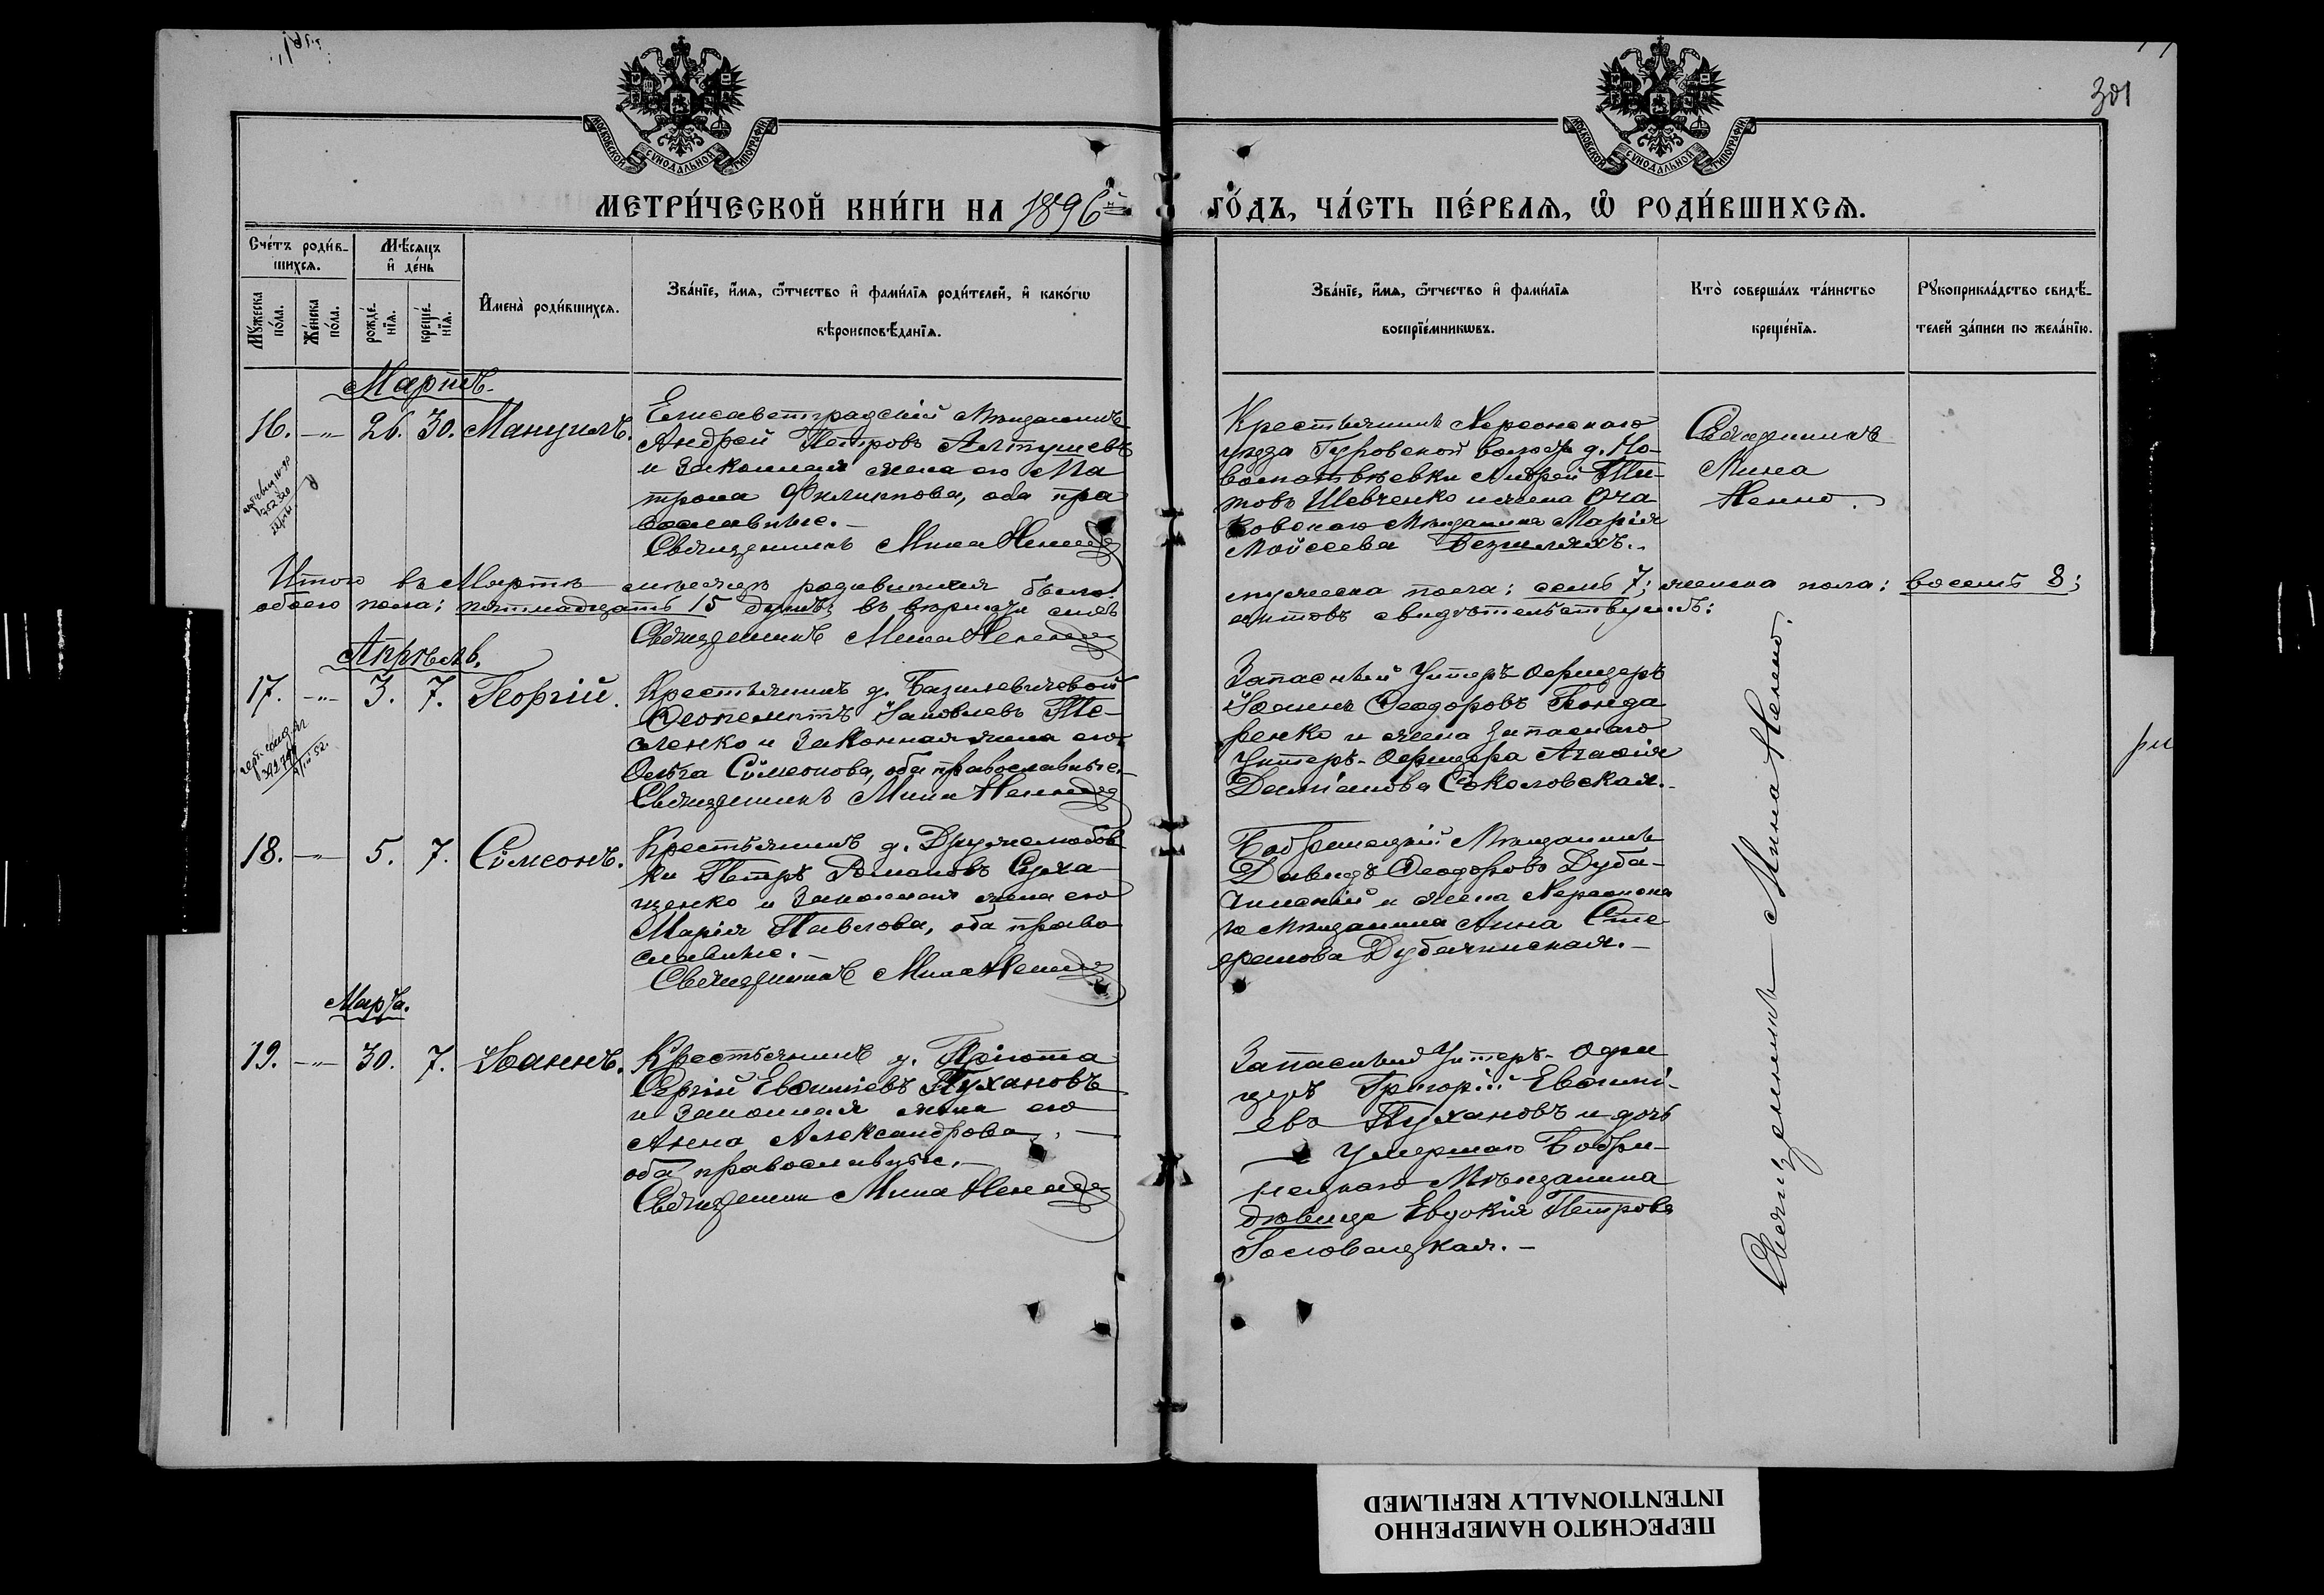 301
МОСКОВСКОЙ СѴНОДАЛЬНОЙ ТИПОГРАФІИ
МОСКОВСКОЙ СѴНОДАЛЬНОЙ ТИПОГРАФІИ
МЕТРИ́ЧЕСКОЙ КНИ́ГИ НА 1896й ГО́ДЪ, ЧА́СТЬ ПЕ́РВАЯ, Ѽ РОДИ́ВШИХСЯ.
Сче́тъ роди́в-
шихся.
Мꙋ́жеска по́ла.
Же́нска по́ла.
Мѣ́сяцъ
и҆ де́нь
рожде́-
нїя.
креще́-
нїя.
И҆мена̀ роди́вшихся.
Зва́нїе, и҆́мя, ѻ҆́тчество и҆ фами́лїя роди́телей, и҆ како́гѡ
вѣроисповѣ́данїя.
Зва́нїе, и҆́мя, ѻ҆́тчество и҆ фами́лїя
воспрїе́мникѡвъ.
Кто̀ соверша́лъ та́инство
креще́нїя.
Рꙋкоприкла́дство свидѣ́-
телей за́писи по жела́нїю.
Мартъ.
16. -"- 26. 30. Мануилъ.
Елисаветградскій Мѣщанинъ
Андрей Петровъ Алтушевъ
и законная жена его Ма
трона Филиппова, оба пра
вославные.-
Священникъ Мина Ненно
Крестьянинъ Херсонскаго
уѣзда Гуровской волос. д. Но-
воматвѣевки Андрей Ти-
товъ Шевченко и жена Оча
ковскаго Мѣщанина Марія
Моисеева Безшляхъ.-
Священникъ
Мина
Ненно.
Итого въ Мартѣ мѣсяцѣ родившихся было: мужеска пола: семь 7; женска пола: восемь 8;
обоего пола: пятнадцать 15 душъ; въ вѣрности сихъ актовъ свидѣтельствуетъ:
Священникъ Мина Ненно
Апрѣль.
17. -"- 3. 7. Георгій.
Крестьянинъ д. Базилевичевой
Феопемптъ Іаковлевъ Те-
сленко и законная жена его
Ольга Сѵмеонова, оба православные.-
Священникъ Мина Ненно
Запасный Унтеръ-Офицеръ
Іоаннъ Феодоровъ Бонда
ренко и жена запаснаго
Унтеръ-Офицера Агафія
Даміанова Соколовская.-
18. -"- 5. 7. Сѵмеонъ.
Крестьянинъ д. Дружелюбов
ки Петръ Романовъ
и законная жена его
Марія Павлова, оба право
славные.-
Священникъ Мина Ненно
Бобринецкій Мѣщанинъ
Давидъ Феодоровъ Дуба-
чинскій и жена Херсонска
го Мѣщанина Анна Сте
фанова Дубачинская.-
Марта.
19. -"- 30. 7. Іоаннъ.
Крестьянинъ д. Пріюта
Сергій Евфиміевъ Пухановъ
и законная жена его
Анна Александрова,
оба православные.-
Священникъ Мина Ненно
Запасный Унтеръ-Офи
церъ Григорій Евфимі-
евъ Пухановъ и дочь
умершаго Бобри-
нецкаго Мѣщанина
дѣвица Евдокія Петрова
Гословецкая.-
Священникъ Мина Ненно.
ПЕРЕСНЯТО НАМЕРЕННО
INTENTIONALLY REFILMED